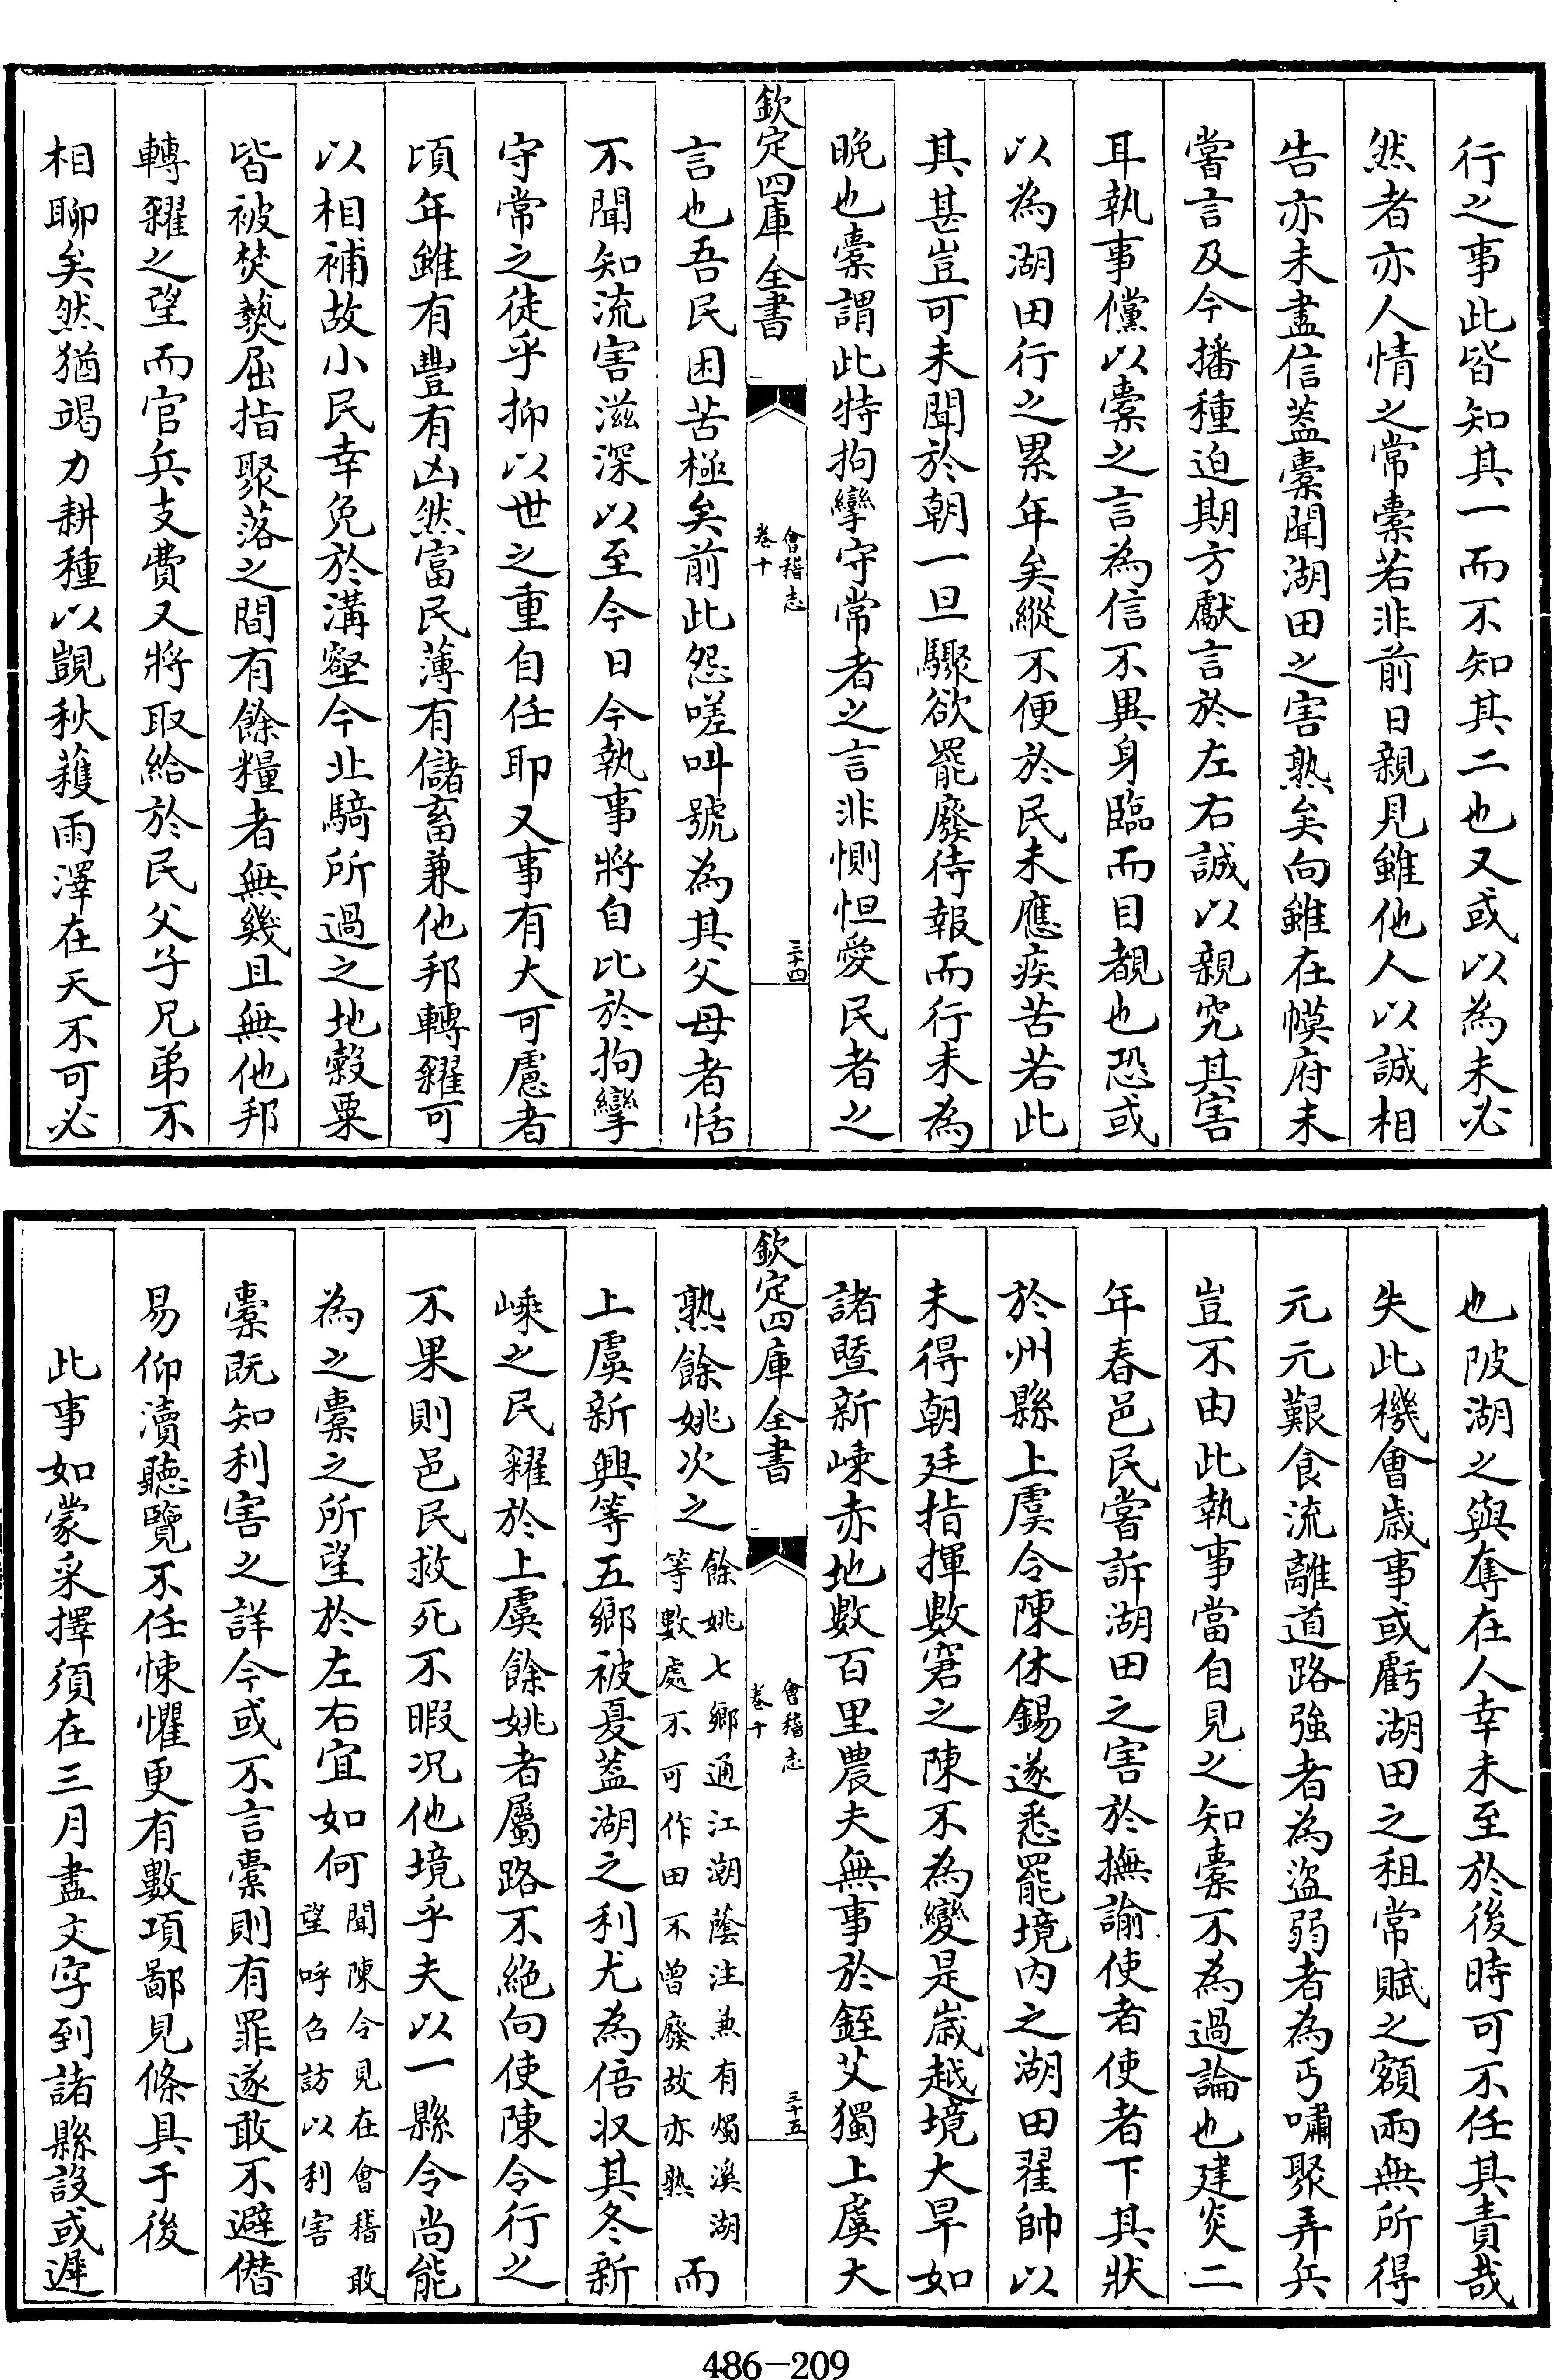 行之事此皆知其一而不知其二也又或以為未必
然者亦人情之常橐若非前日親見雖他人以誠相
告亦未盡信蓋橐聞湖田之害熟矣向雖在幙府未
嘗言及今播種迫期方獻言於左右誠以親究其害
耳執事儻以橐之言為信不異身臨而目覩也恐或
以為湖田行之累年矣縱不便於民未應疾苦若此
其甚豈可未聞於朝一旦驟欲罷廢待報而行未為
晩也橐謂此特拘攣守常者之言非惻怛愛民者之
欽定四庫全書
會稽志
卷十
三十四
言也吾民困苦極矣前此怨嗟呌號為其父母者恬
不聞知流害滋深以至今日今執事將自比於拘攣
守常之徒乎抑以世之重自任耶又事有大可慮者
頃年雖有豐有凶然富民薄有儲畜兼他邦轉糴可
以相補故小民幸免於溝壑今北騎所過之地穀粟
皆被焚爇屈指聚落之間有餘糧者無幾且無他邦
轉糴之望而官兵支費又將取給於民父子兄弟不
相聊矣然猶竭力耕種以覬秋穫雨澤在天不可必
也陂湖之與奪在人幸未至於後時可不任其責哉
失此機會歲事或虧湖田之租常賦之額兩無所得
元元艱食流離道路強者為盜弱者為丐嘯聚弄兵
豈不由此執事當自見之知橐不為過論也建炎二
年春邑民嘗訴湖田之害於撫諭使者使者下其狀
於州縣上虞令陳休錫遂悉罷境内之湖田翟帥以
未得朝廷指揮數窘之陳不為變是歲越境大旱如
諸暨新嵊赤地數百里農夫無事於銍艾獨上虞大
欽定四庫全書
會稽志
卷十
三十五
熟餘姚次之餘姚七鄉通江潮蔭注兼有燭溪湖等數處不可作田不曾廢故亦熟而
上虞新興等五鄉被夏蓋湖之利尤為倍収其冬新
嵊之民糴於上虞餘姚者屬路不絶向使陳令行之
不果則邑民救死不暇況他境乎夫以一縣令尚能
為之橐之所望於左右宜如何聞陳令見在會稽敢望呼召訪以利害
橐既知利害之詳今或不言橐則有罪遂敢不避僭
易仰瀆聽覽不任悚懼更有數項鄙見條具于後
此事如蒙采擇須在三月盡文字到諸縣設或遲
486-209